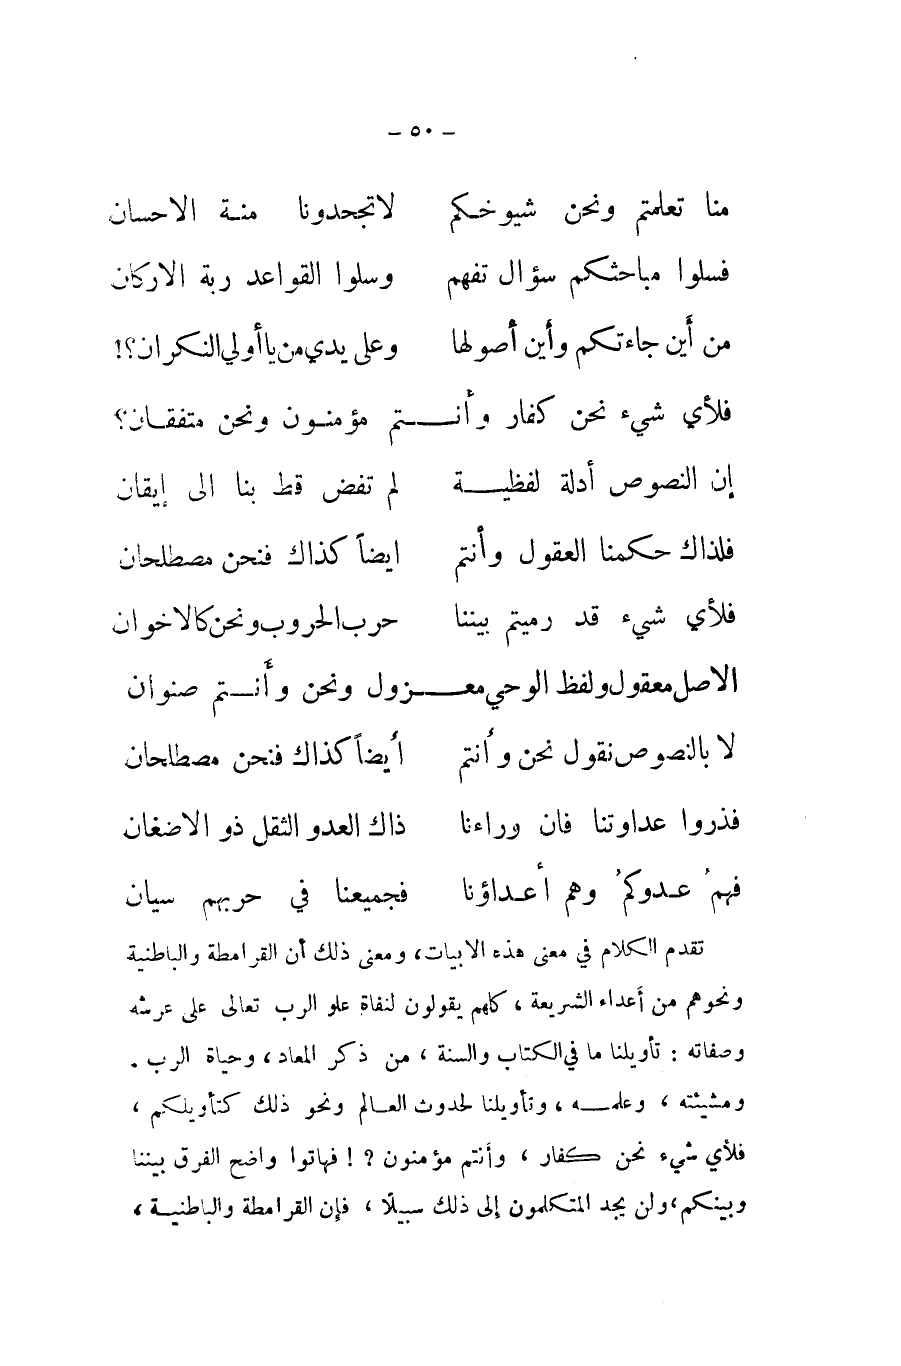 - ٥٠ -
منا تعلمتم ونحن شيوخكم لاتجحدونا منة الاحسان
فسلوا مباحثكم سؤال تفهم وسلوا القواعد ربة الاركان
من أين جاءتكم وأين أصولها وعلى يدي من ياأولي النكران؟!
فلأي شيء نحن كفار وأنتم مؤمنون ونحن متفقان؟
إن النصوص أدلة لفظية لم تفض قط بنا الى إيقان
فلذاك حكمنا العقول وأنتم ايضاً كذاك فنحن مصطلحان
فلأي شيء قد رميتم بيننا حرب الحروب ونحن كالاخوان
الاصل معقول ولفظ الوحي معزول ونحن وأنتم صنوان
لا بالنصوص نقول نحن وأنتم أيضاً كذاك فنحن مصطلحان
فذروا عداوتنا فان وراءنا ذاك العدو الثقل ذو الاضغان
فهمُ عدوكمُ وهم أعداؤنا فجميعنا في حربهم سيان
تقدم الكلام في معنى هذه الابيات، ومعنى ذلك أن القرامطة والباطنية
ونحوهم من أعداء الشريعة، كلهم يقولون لنفاة علو الرب تعالى على عرشه
وصفاته : تأويلنا ما في الكتاب والسنة، من ذكر المعاد، وحياة الرب .
ومشيئته، وعلمه، وتأويلنا لحدوث العالم ونحو ذلك كتأويلكم،
فلأي شيء نحن كفار، وأنتم مؤمنون ؟ ! فهاتوا واضح الفرق بيننا
وبينكم، ولن يجد المتكلمون إلى ذلك سبيلًا، فإن القرامطة والباطنية،